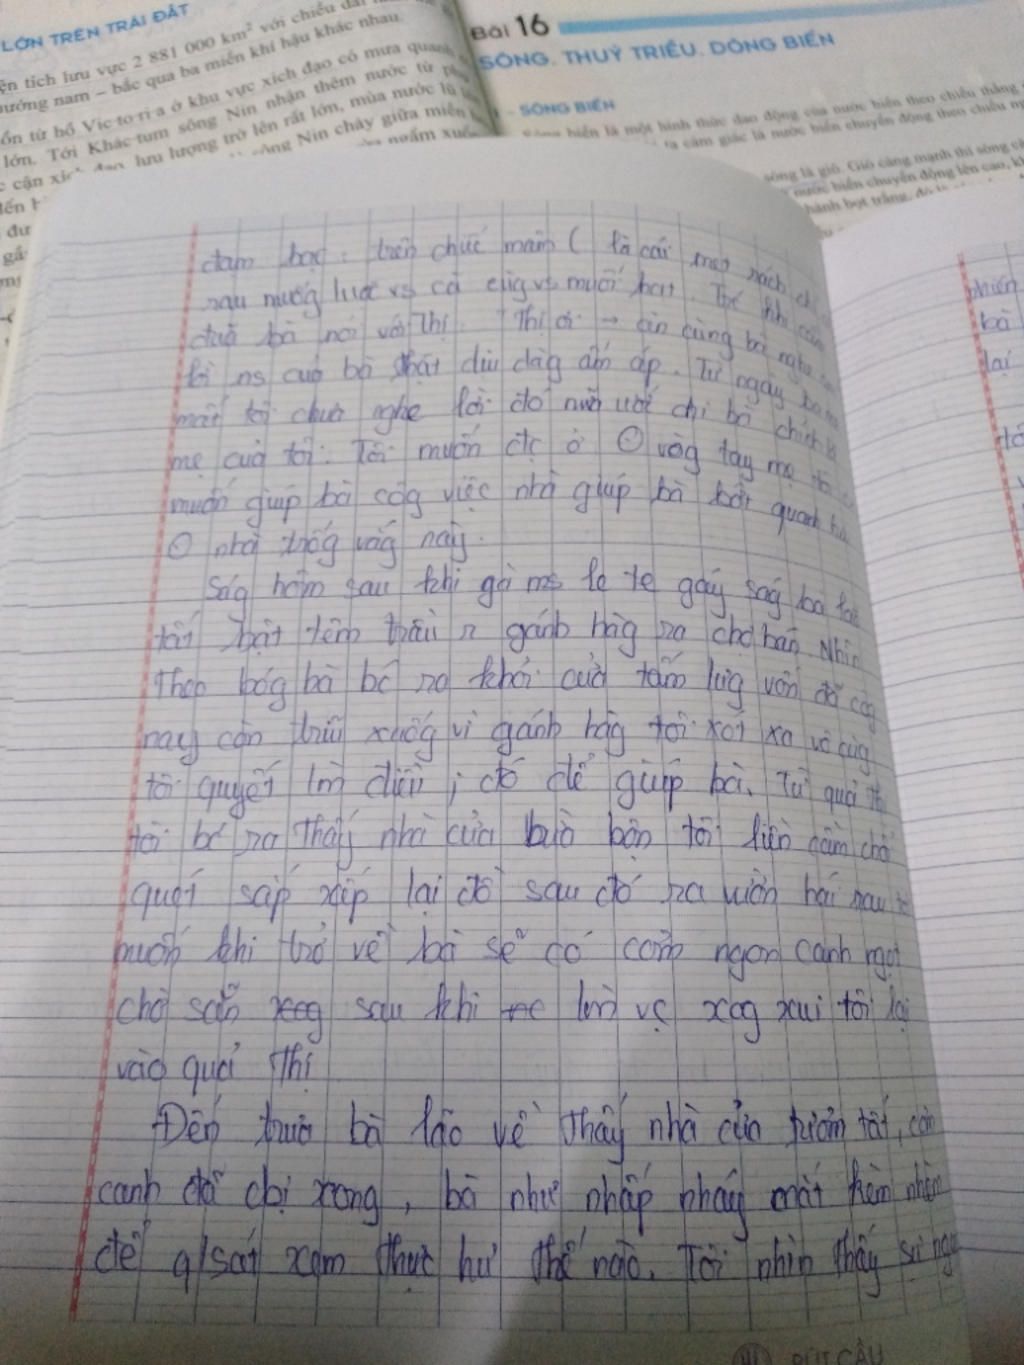 LỚN TRÊN TRÁI ĐẤT
ện tích lưu vực 2 881 000 km² với chiều dài
hướng nam – bắc qua ba miền khí hậu khác nhau.
ồn từ hồ Vic-to-ri-a ở khu vực xích đạo có mưa quanh
lớn. Tới Khác-tum sông Nin nhận thêm nước từ
lưu lượng trở lên rất lớn, mùa nước lũ
Nin chảy giữa miền
ngấm xuố
Bài 16
SÓNG. THUỶ TRIỀU. DÒNG BIỂN
– SÓNG BIỂN
biển là một hình thức dao động của nước biển theo chiều thẳng
ta cảm giác là nước biển chuyển động theo chiều
sóng là gió. Gió càng mạnh thì sóng
nước biển chuyển động lên cao,
thành bọt trắng, đó là
đạm bạc. trên chiếc mâm ( là cái mẹt rách
rau muốg luộc vs cà vs muối hạt. Trc khi cầm
đũa bà nói với Thị. Thị ơi → ăn cùng bà
lời ns của bà thật dịu dàg ấm áp. Từ ngày
mất tôi chưa nghe lời đó nữa ước chi bà chính là
mẹ của tôi. Tôi muốn đc ở vòg tay mẹ
muốn giúp bà côg việc nhà giúp bà bớt quạnh
nhà trốg vắg này.
Ság hôm sau khi gà ms le te gáy ság bà
tất bật têm trầu r gánh hàg ra chợ bán. Nhìn
theo bóg bà bc ra khỏi cửa tấm lưg vốn đã còg
nay còn trĩu xuốg vì gánh hàg tôi xót xa vô cùg
tôi quyết lm điều j đó để giúp bà. Từ quả thị
tôi bc ra thấy nhà cửa bừa bộn tôi liền cầm chổi
quét sắp xếp lại đồ sau đó ra vườn hái rau
muốn khi trở về bà sẽ có cơm ngon canh ngọt
chờ sẵn sau khi lm vc xog xui tôi lại
vào quả thị
Đến trưa bà lão về thấy nhà cửa tươm tất, cơm
canh đã cbị xong, bà như nhấp nháy mắt
để q/sát xem thực hư thế nào. Tôi nhìn thấy sự